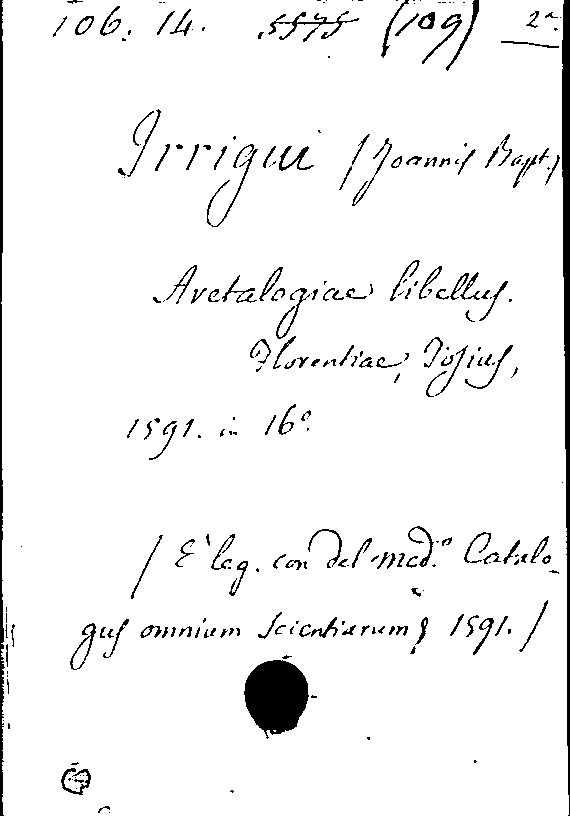 106. 14. 5575 (109) 2ª.
Irrigui (Joannis Bapt.)
Aretalogiae libellus.
Florentiae, Tosius,
1591. in 16º.
/ E' leg. con del med.º Catalo-
gus omnium scientiarum, 1591. /